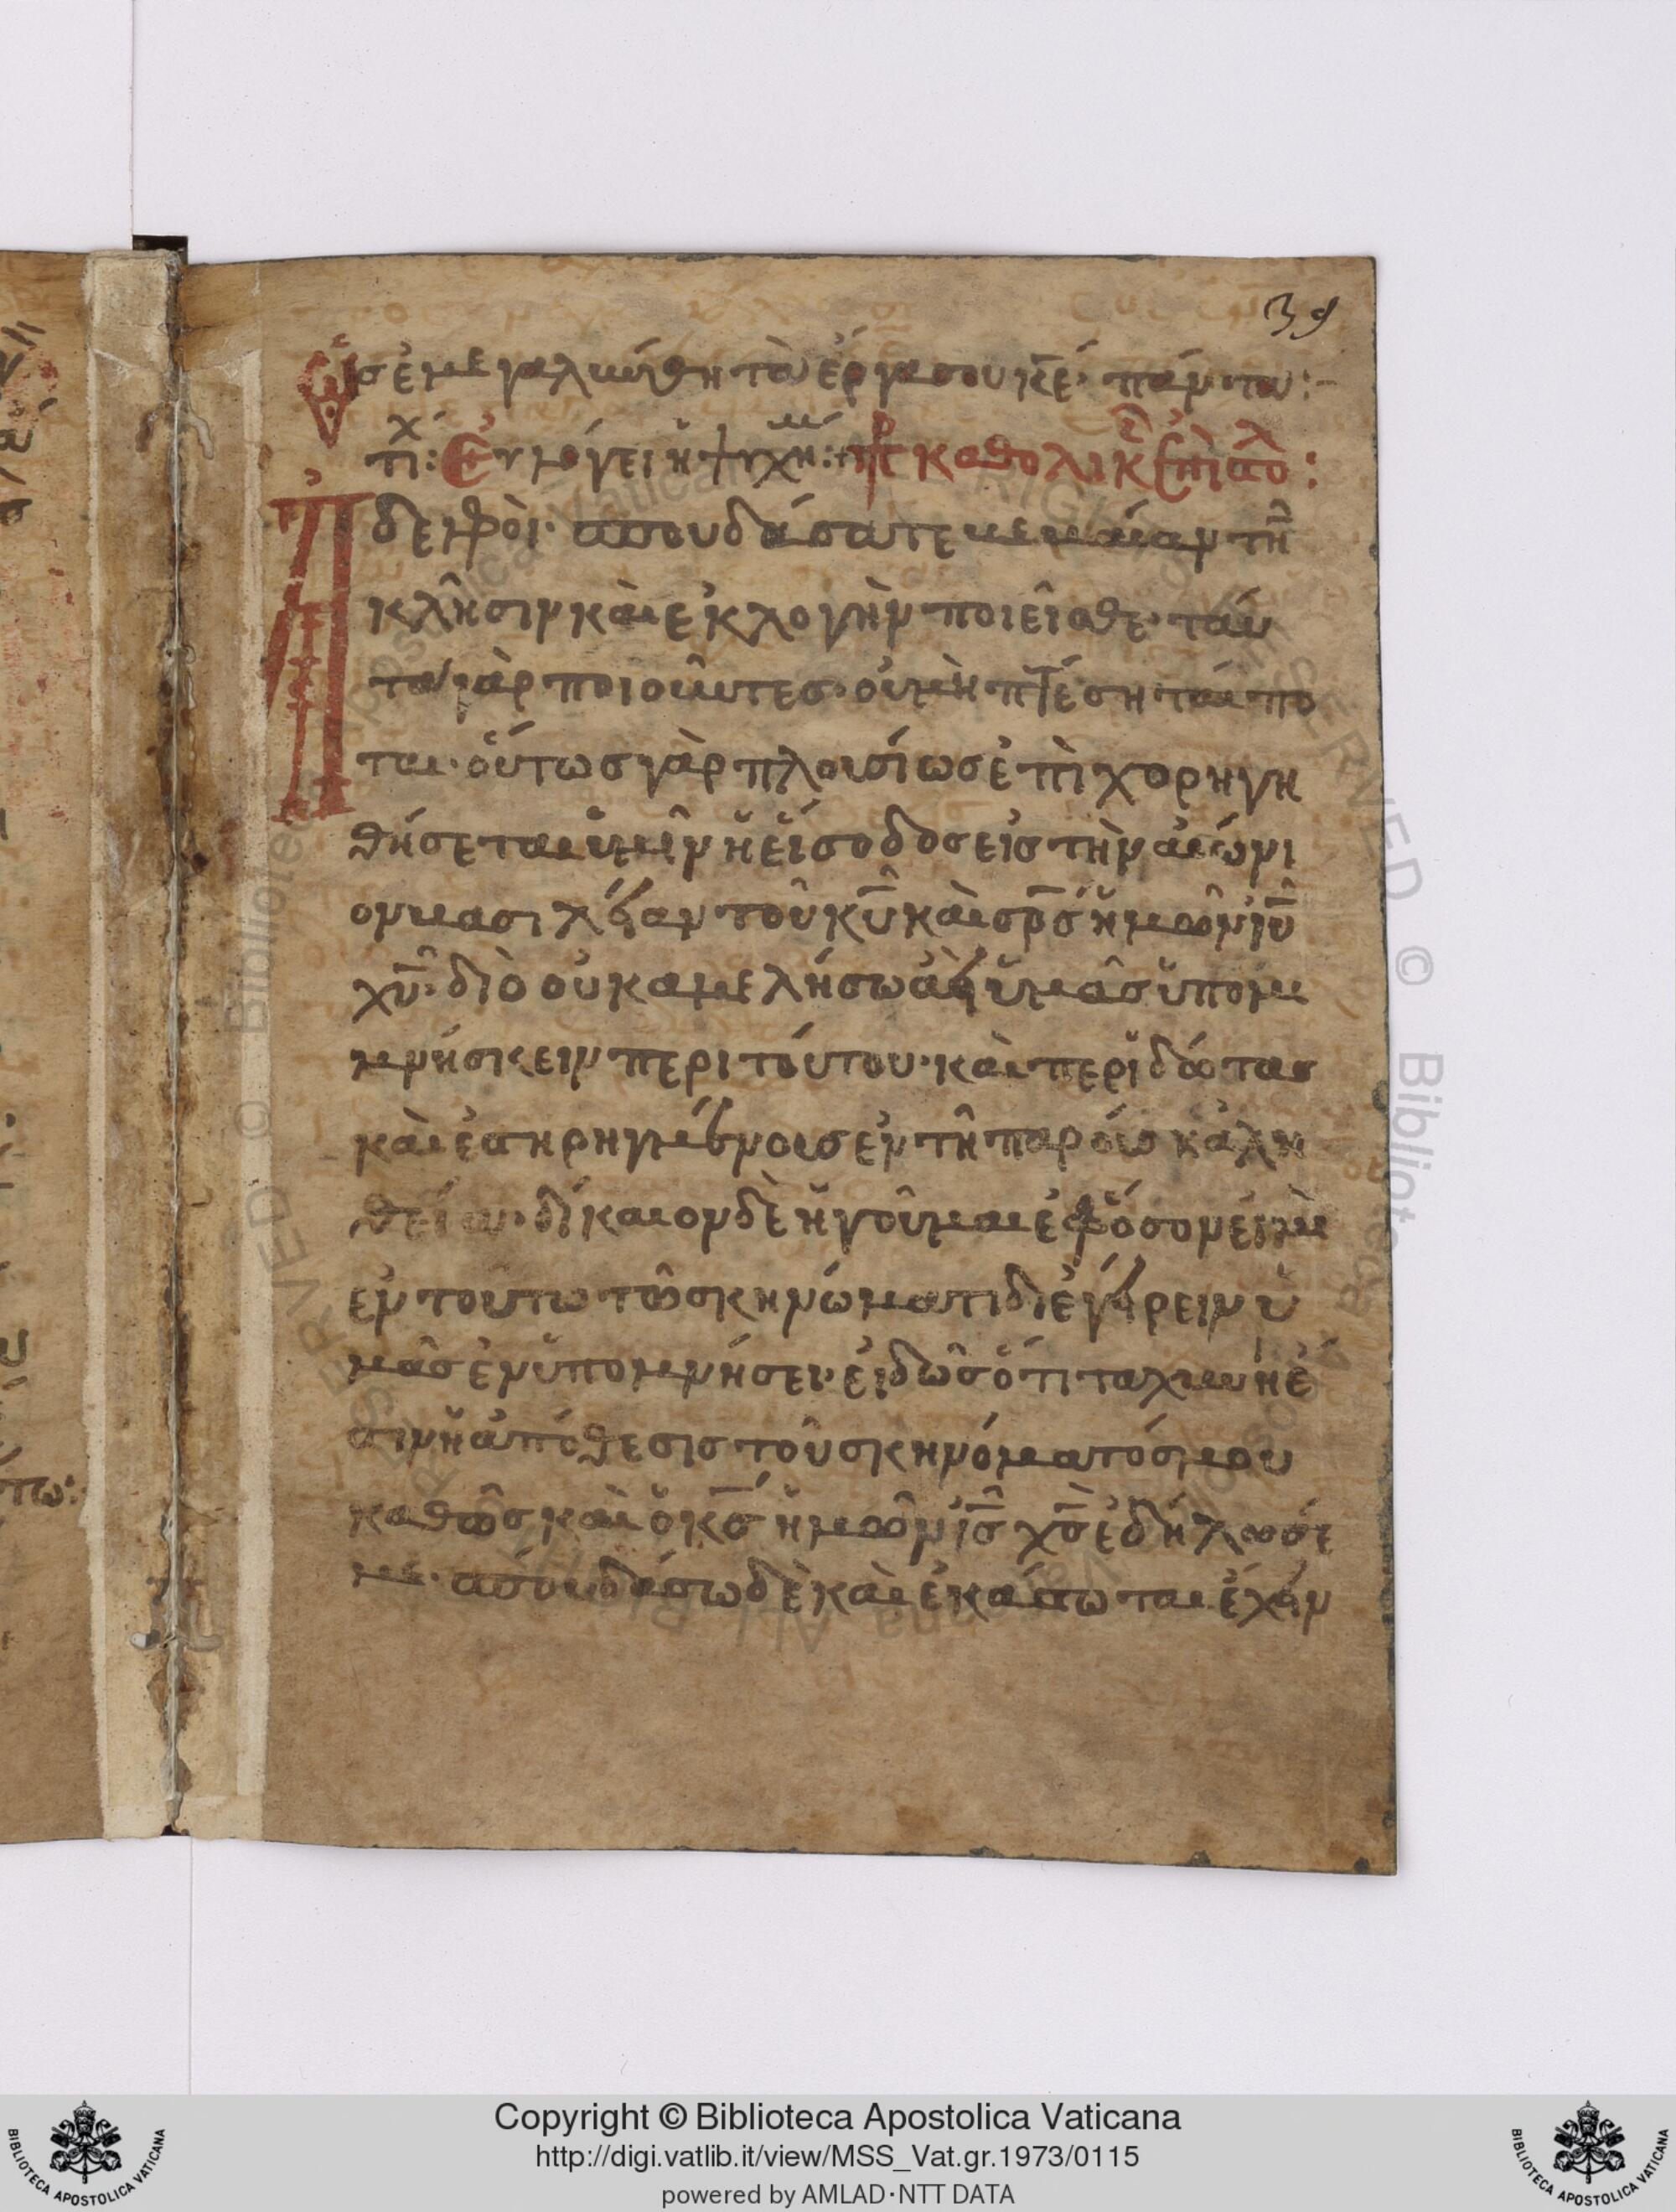 39
Ὡσ ἐμεγαλύνθη τὰ ἔργα σου κ̅ε̅· πάντα:
στι: Εὐλόγει ἡ ψυχή: καθολικ ἐπιστολ:
Ἀδελφοὶ· σπουδάσατε βεβαίαν τὴν
κλῆσιν καὶ ἐκλογὴν ποιεῖσθε· ταύ
τα γὰρ ποιοῦντεσ· οὐ μὴ πτέσηται πο
ται· οὕτωσ γὰρ πλουσίωσ ἐπιχορηγη
θήσεται ὑμῖν ἡ εἴσοδοσ εἰσ τὴν αἰώνι
ον βασιλείαν τοῦ κ̅υ̅ καὶ σ̅ρ̅σ̅ ἡμῶν ι̅υ̅
χ̅υ̅· διὸ οὐκ αμελήσω ἀεὶ ὑμᾶσ ὑπομι
μνήσκειν περι τούτου· καὶπερ ἰδότασ
καὶ ἐστηρηγμένουσ ἐν τῆ παρούσ κἀλη
θεία· δίκαιον δὲ ἡγοῦμαι ἐφόσον εἰμὶ
ἐν τούτω τῶ σκηνώματι διεγείρειν ὑ
μᾶσ ἐν ὑπομνήσει· εἰδῶσ ὅτι ταχινη ἐ
στιν ἡ ἀπόθεσισ τοῦ σκηνόματόσ μου
καθῶσ καὶ ὁ κ̅σ̅ ἡμῶν ι̅σ̅ χ̅σ̅ ἐδήλωσέ
με· σπουδάσω δὲ καὶ ἑκάστωται ἔχειν
Copyright © Biblioteca Apostolica Vaticana
http://digi.vatlib.it/view/MSS_Vat.gr.1973/0115
powered by AMLAD·NTT DATA
BIBLIOTECA APOSTOLICA VATICANA
BIBLIOTECA APOSTOLICA VATICANA